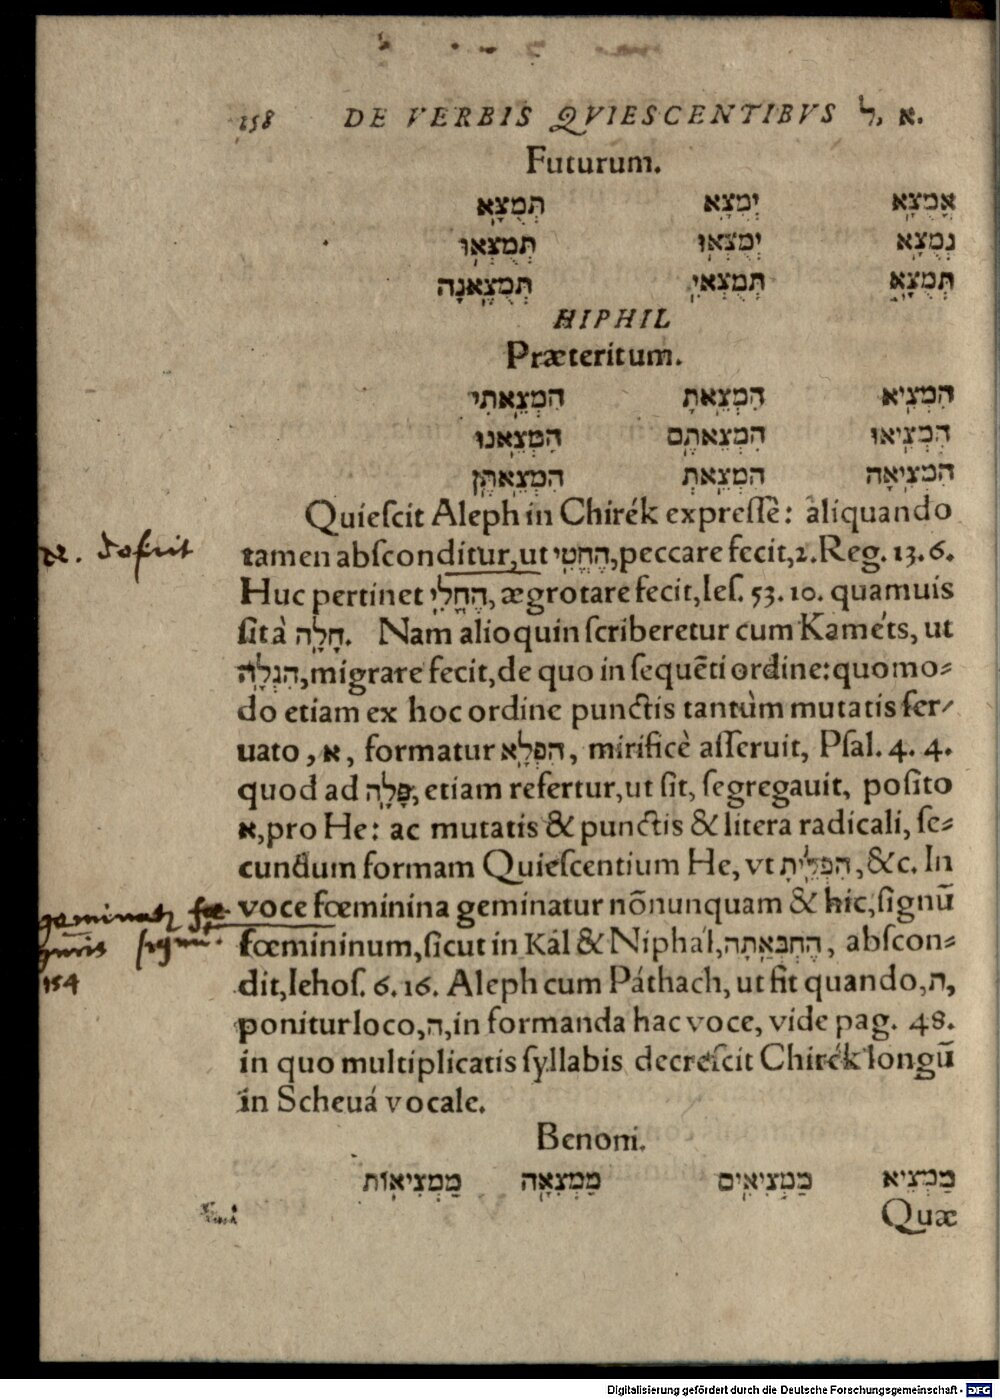 158 DE VERBIS QVIESCENTIBVS ל, א.
Futurum.
אֲמֻצָּא יְמֻצָּא תְּמֻצָּא
נְמֻצָּא יְמֻצְּאוּ תְּמֻצְּאוּ
תְּמֻצָּא תְּמֻצְּאִי תְּמֻצֶּאנָה
HIPHIL
Præteritum.
הִמְצִיא הִמְצֵאתָ הִמְצֵאתִי
הִמְצִיאוּ הִמְצֵאתֶם הִמְצֵאנוּ
הִמְצִיאָה הִמְצֵאתְ הִמְצֵאתֶן
Quieſcit Aleph in Chirék expreſsè: aliquando
tamen abſconditur, ut הֶחֱטִי, peccare fecit, 2. Reg. 13. 6.
Huc pertinet הֶחֱלִי, ægrotare fecit, Ieſ. 53. 10. quamuis
ſit à חָלָה. Nam alioquin ſcriberetur cum Kaméts, ut
הִגְלָה, migrare fecit, de quo in ſequẽti ordine: quomo⸗
do etiam ex hoc ordine punctis tantùm mutatis ſer⸗
uato, א, formatur הִפְלָא, mirificè aſſeruit, Pſal. 4. 4.
quod ad פָּלָה, etiam refertur, ut ſit, ſegregauit, poſito
א, pro He: ac mutatis & punctis & litera radicali, ſe⸗
cundum formam Quieſcentium He, vt הִפְלִיתָ, &c. In
voce fœminina geminatur nõnunquam & hic, ſignũ
fœmininum, ſicut in Kál & Niphál, הֶחְבִּאַתָה, abſcon⸗
dit, Iehoſ. 6. 16. Aleph cum Páthach, ut fit quando, ת,
ponitur loco, ה, in formanda hac voce, vide pag. 48.
in quo multiplicatis ſyllabis decreſcit Chirék longũ
in Scheuá vocale.
Benoni.
מַמְצִיא מַמְצִיאִים מַמְצִאָה מַמְצִיאוֹת
Quæ
א. defuit
geminatz fœ
signũ
154
Digitalisierung gefördert durch die Deutsche Forschungsgemeinschaft - DFG